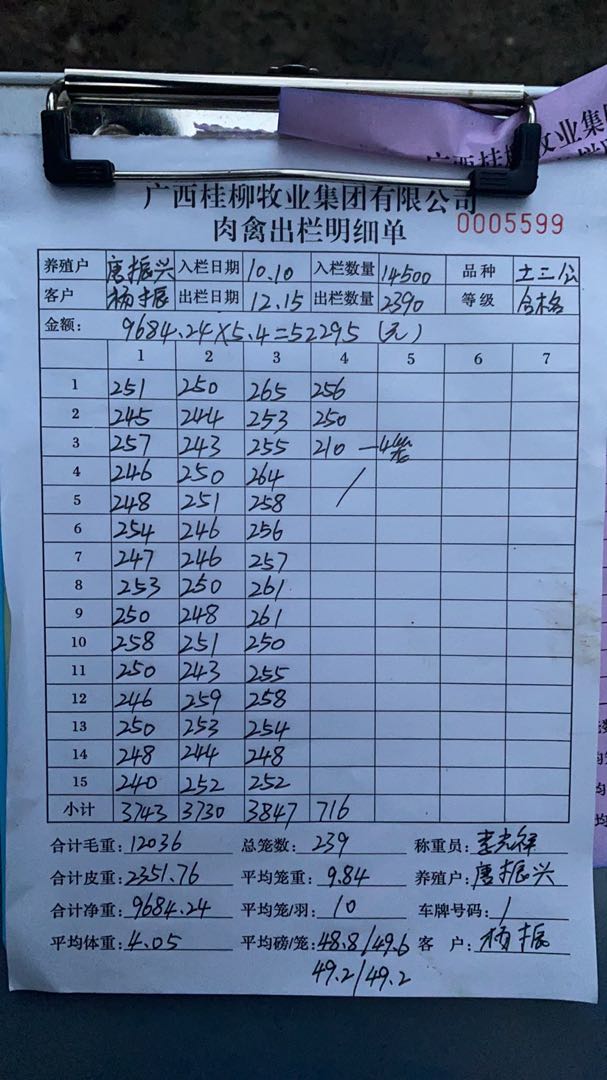 广西桂柳牧业集团有限公司
肉禽出栏明细单 0005599
养殖户 唐振兴 入栏日期 10.10 入栏数量 14500 品种 土三公
客户 杨振 出栏日期 12.15 出栏数量 2390 等级 合格
金额: 9684.24×5.4=52295 (元)
1 2 3 4 5 6 7
1 251 250 265 256
2 245 244 253 250
3 257 243 255 210 —4笼
4 246 250 264 /
5 248 251 258
6 254 246 256
7 247 246 257
8 253 250 261
9 250 248 261
10 258 251 250
11 250 243 255
12 246 259 258
13 250 253 254
14 248 244 248
15 240 252 252
小计 3743 3730 3847 716
合计毛重: 12036 总笼数: 239 称重员: 李光祥
合计皮重: 2351.76 平均笼重: 9.84 养殖户: 唐振兴
合计净重: 9684.24 平均笼/羽: 10 车牌号码: 1
平均体重: 4.05 平均磅/笼: 48.8/49.6 客 户: 杨振
49.2/49.2